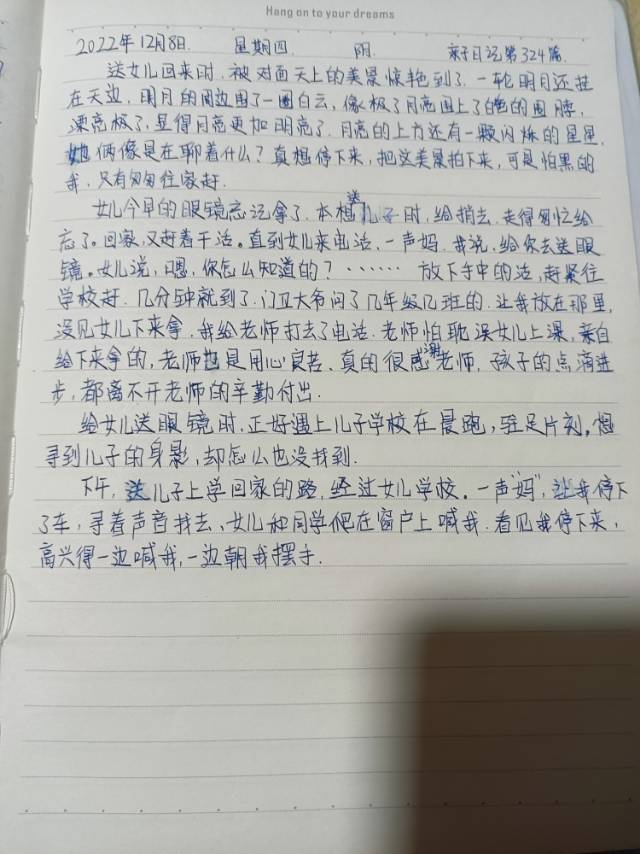 Hang on to your dreams
2022年12月8日. 星期四 阴 亲子日记第324篇.
送女儿回来时,被对面天上的美景惊艳到了.一轮明月还挂
在天边,明月的周边围了一圈白云,像极了月亮围上了白色的围脖,
漂亮极了,显得月亮更加明亮了.月亮的上方还有一颗闪烁的星星,
她俩像是在聊着什么?真想停下来,把这美景拍下来,可是怕黑的
我,只有匆匆往家赶.
女儿今早的眼镜忘记拿了.本想送儿子时,给捎去.走得匆忙给
忘了。回家,又赶着干活。直到女儿来电话,一声妈.我说,给你去送眼
镜。女儿说,嗯,你怎么知道的?……放下手中的活,赶紧往
学校赶.几分钟就到了.门卫大爷问了几年级几班的.让我放在那里,
没见女儿下来拿.我给老师打去了电话.老师怕耽误女儿上课,亲自
给下来拿的,老师也是用心良苦.真的很感谢老师,孩子的点滴进
步,都离不开老师的辛勤付出.
给女儿送眼镜时,正好遇上儿子学校在晨跑,驻足片刻,想
寻到儿子的身影,却怎么也没找到.
下午,送儿子上学回家的路,经过女儿学校。一声"妈",让我停下
了车,寻着声音找去、女儿和同学爬在窗户上喊我.看见我停下来,
高兴得一边喊我,一边朝我摆手.